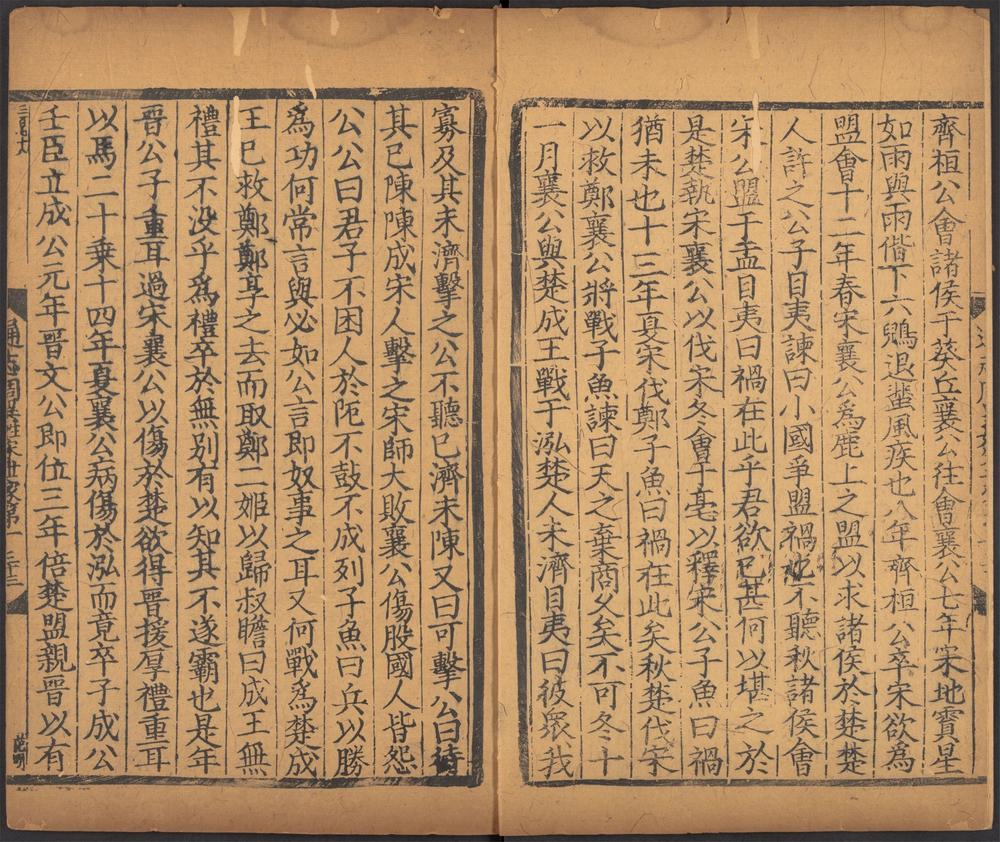 齊桓公會諸侯于葵丘襄公往會襄公七年宋地霣星
如雨與雨偕下六鶂退蜚風疾也八年齊桓公卒宋欲為
盟會十二年春宋襄公為鹿上之盟以求諸侯於楚楚
人許之公子目夷諫曰小國爭盟禍也不聽秋諸侯會
宋公盟于盂目夷曰禍在此乎君欲已甚何以堪之於
是楚執宋襄公以伐宋冬會于亳以釋宋公子魚曰禍
猶未也十三年夏宋伐鄭子魚曰禍在此矣秋楚伐宋
以救鄭襄公將戰子魚諫曰天之棄商久矣不可冬十
一月襄公與楚成王戰于泓楚人未濟目夷曰彼眾我
寡及其未濟擊之公不聽已濟未陳又曰可擊公曰待
其已陳陳成宋人擊之宋師大敗襄公傷股國人皆怨
公公曰君子不困人於阨不鼓不成列子魚曰兵以勝
爲功何常言與必如公言即奴事之耳又何戰爲楚成
王已救鄭鄭享之去而取鄭二姬以歸叔瞻曰成王無
禮其不没乎爲禮卒於無別有以知其不遂霸也是年
晉公子重耳過宋襄公以傷於楚欲得晉援厚禮重耳
以馬二十乗十四年夏襄公病傷於泓而竟卒子成公
壬臣立成公元年晉文公即位三年倍楚盟親晉以有
通志周異姓世家第一